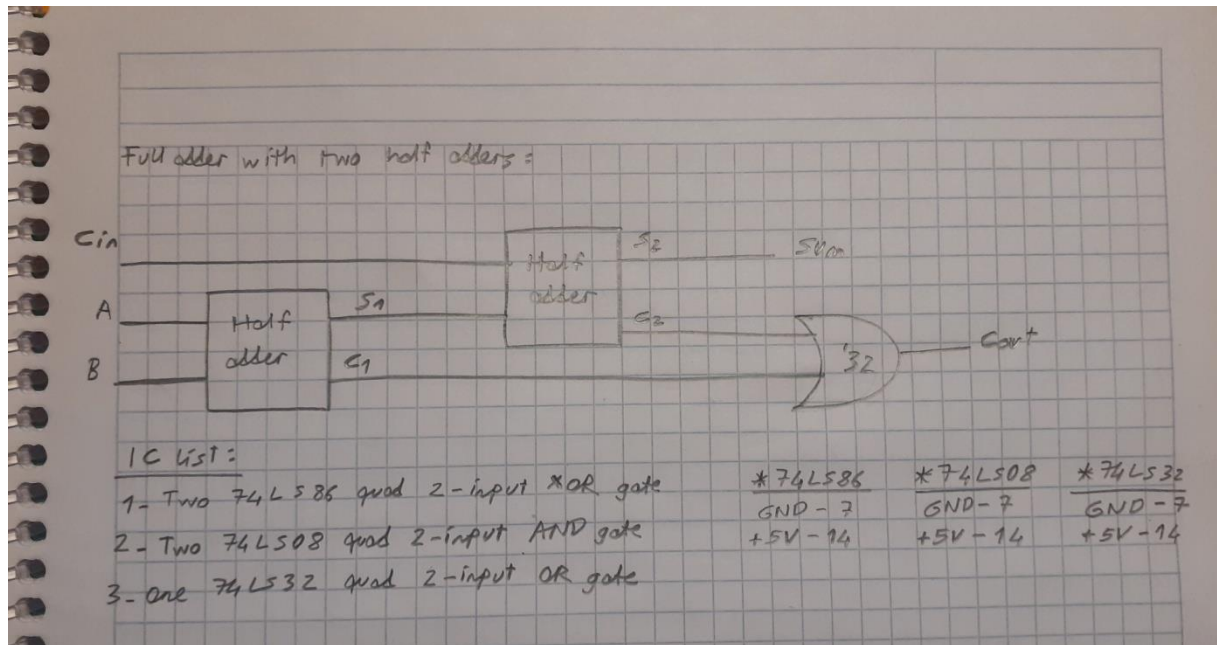 Full adder with two half adders:
Cin
S2
Sum
Half
adder
A
S1
Half
adder
C2
Cout
'32
B
C1
IC list:
1- Two 74LS86 quad 2-input XOR gate
2- Two 74LS08 quad 2-input AND gate
3- one 74LS32 quad 2-input OR gate
*74LS86
GND - 7
+5V - 14
*74LS08
GND - 7
+5V - 14
*74LS32
GND - 7
+5V - 14